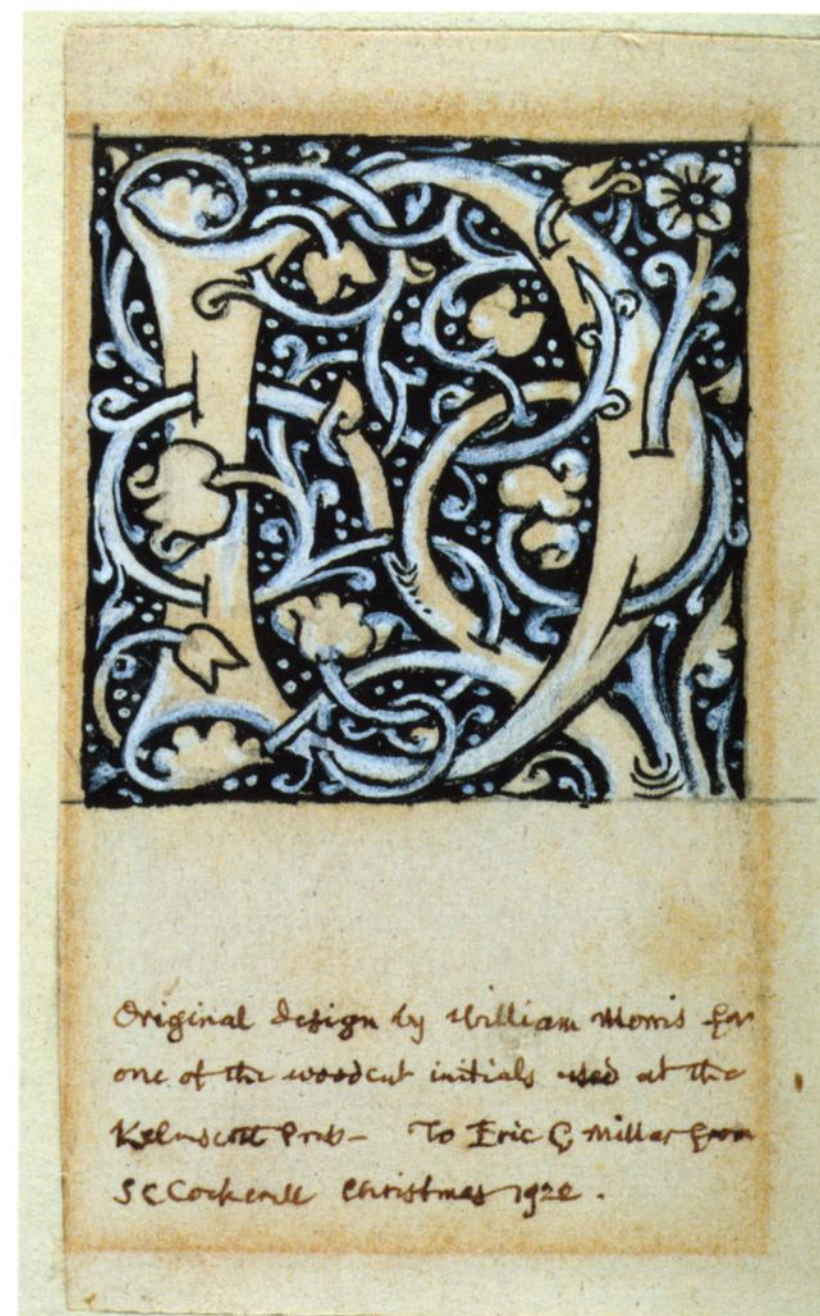 Original design by William Morris for
one of the woodcut initials used at the
Kelmscott Press — To Eric G. Millar from
S C Cockerell Christmas 1920.